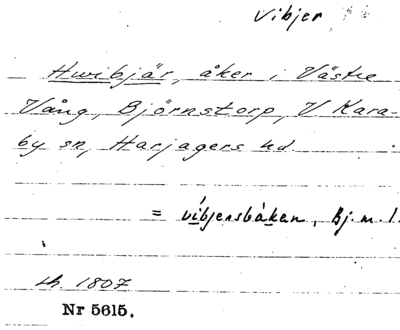 Vibjer
Hwibjär, åker i Västre
Vång, Björnstorp, V Kara-
by sn, Harjagers hd
= vibjersbåken, Bj. m. l.
Lh. 1807
Nr 5615.